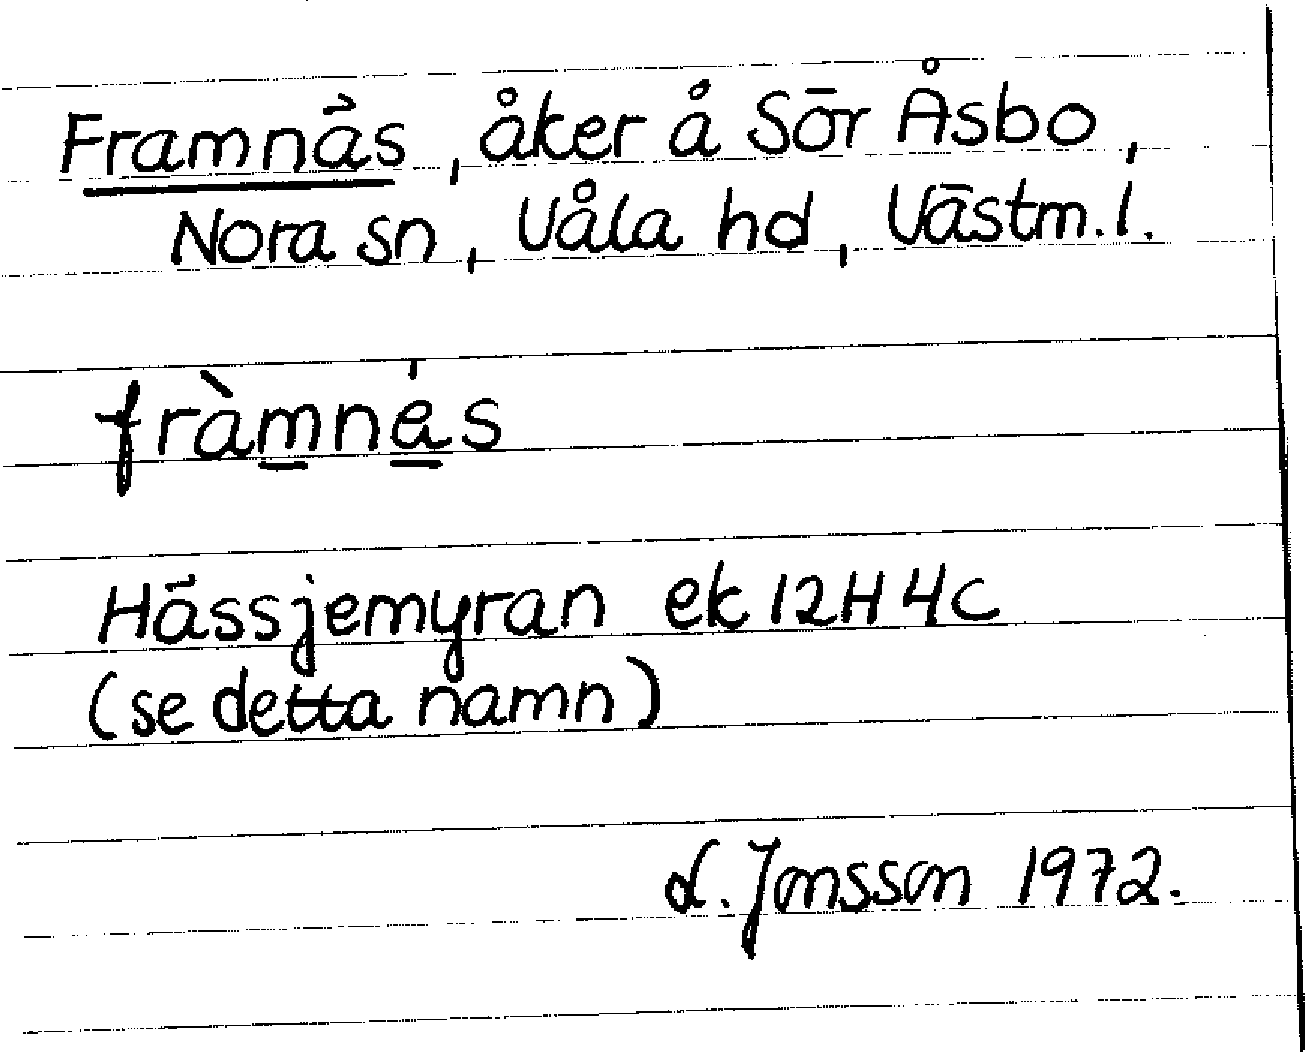 Framnäs, åker å Sör Åsbo,
Nora sn, Våla hd, Västm.l.
fràmnés
Hässjemyran ek 12H 4c
(se detta namn)
L. Jonsson 1972.